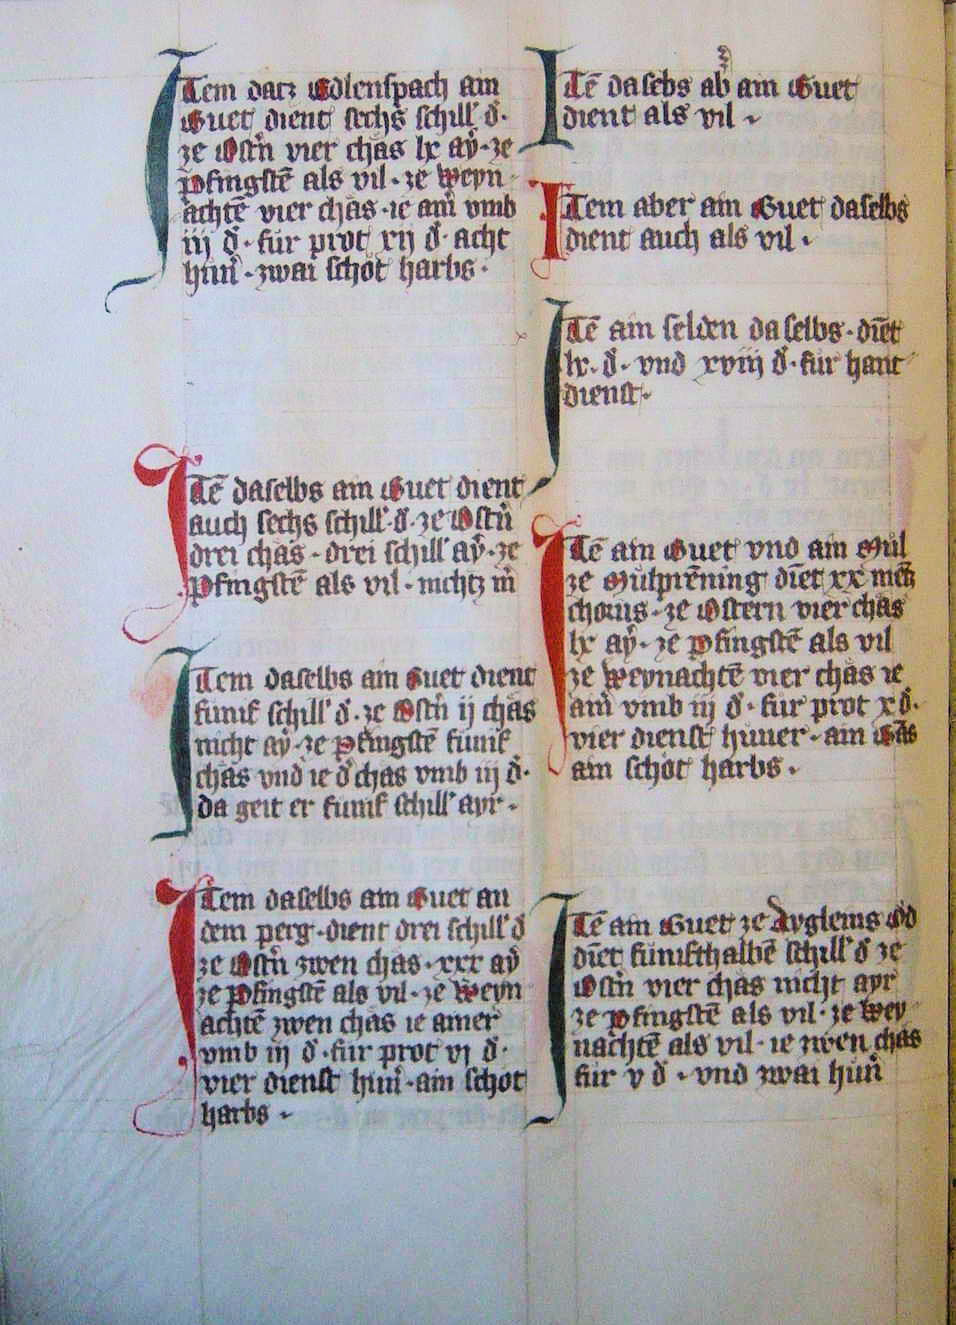 Item datz Edlenspach ain
Guet dient sechs schill d̕.
ze Ostn̕ vier chäs lx aẏ. ze
Pfingstē als vil. ze Weyn
achtē vier chäs. ie ain̕ vmb
iij d̕. für prot xij d̕. acht
hün̕. zwai schot harbs.
ITē daselbs ain Guet dient
auch sechs schill̕. d̕. ze Ostn̕
drei chäs. drei schill̕ aẏ. ze
Pfingstē als vil. nichtz m̕
Item daselbs ain Guet dient
fumf schill̕ d̕. ze Ostn̕ ij chäs
nicht aẏ. ze Pfingstē fumf
chäs vnd ie d̕ chäs vmb iij d̕.
da geit er fumf schill̕ ayr.
Item daselbs ain Guet an
dem perg. dient drei schill̕ d̕
ze Ostn̕ zwen chäs. xxx aẏ
ze Pfingstē als vil. ze Weyn
achtē zwen chäs ie ainer
vmb iij d̕. für prot vj d̕.
vier dienst hün̕. ain schot
harbs.
ITē dasebs ab̕ ain Guet
dient als vil.
Item aber ain Guet daselbs
dient auch als vil.
ITē ain selden daselbs. diēt
lx. d̕. vnd xviij d̕. für hant
dienst.
ITē ain Guet vnd ain Mül
ze Mülprēning diēt xx metz
chorns. ze Ostern vier chäs
lx aẏ. ze Pfingstē als vil
ze Weynachtē vier chäs ie
ain̕ vmb iij d̕. für prot x d̕.
vier dienst hüner. ain Gās
ain schot harbs.
ITē ain Guet ze Aygleins Öd
diēt fümfthalbē schill̕ d̕ ze
Ostn̕ vier chäs nicht ayr
ze Pfingstē als vil. ze Wey
nachtē als vil. ie zwen chäs
für v d̕. vnd zwai hün̕